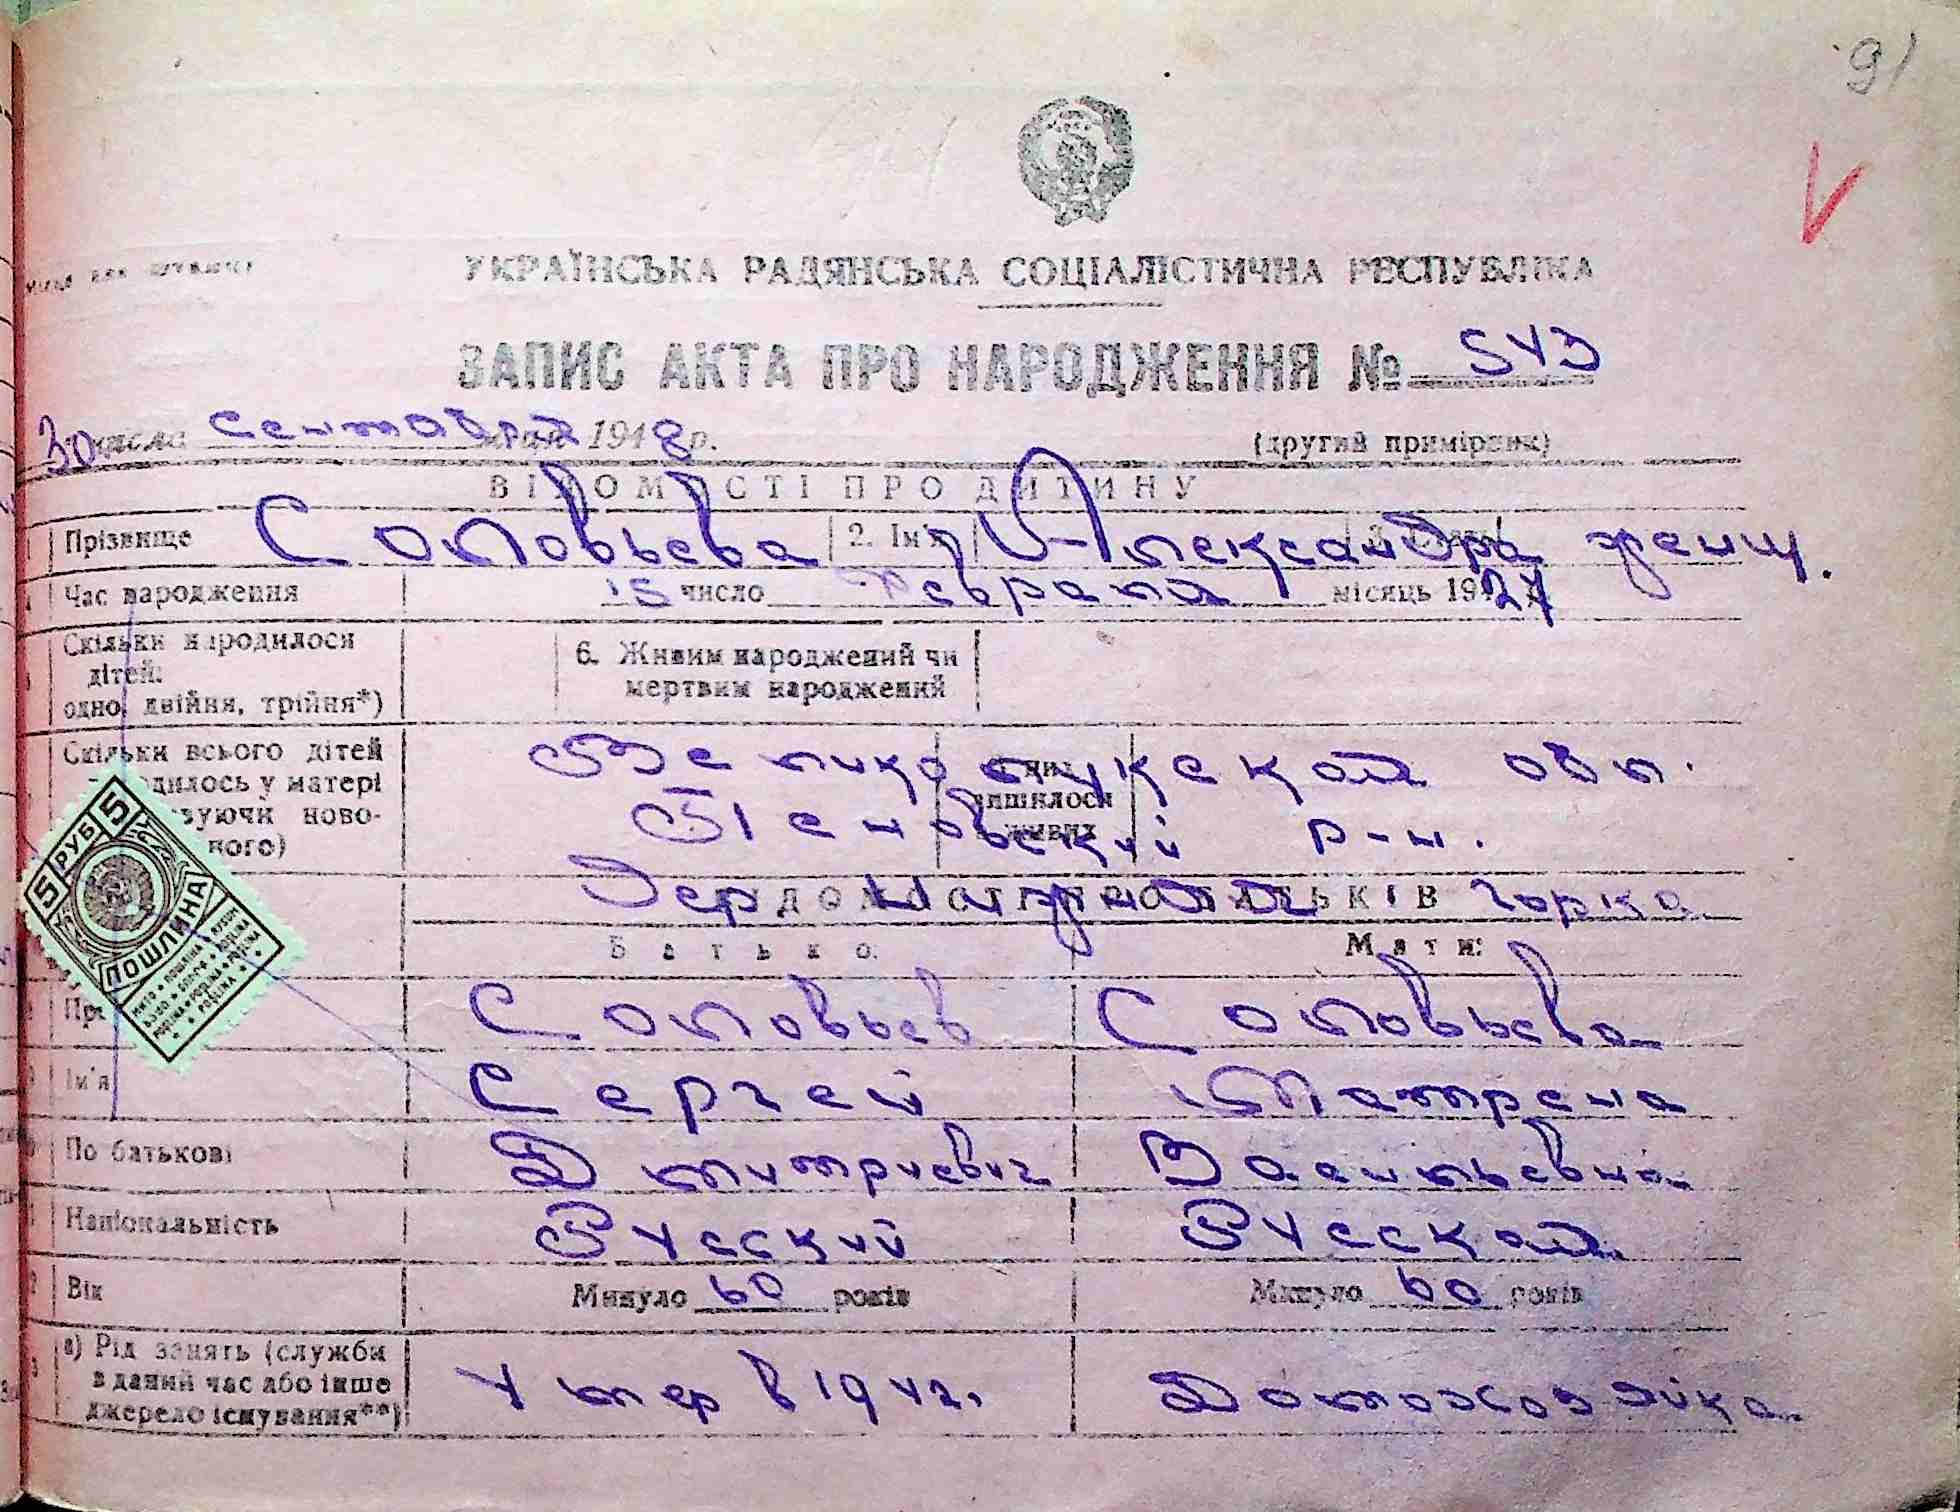 91
V
УКРАЇНСЬКА РАДЯНСЬКА СОЦІАЛІСТИЧНА РЕСПУБЛІКА
ЗАПИС АКТА ПРО НАРОДЖЕННЯ № 543
30 числа сентября 1948 р. (другий примірник)
ВІДОМОСТІ ПРО ДИТИНУ
Прізвище Соловьева 2. Ім'я Александра женщ.
Час народження 15 число Февраля місяць 1927
Скільки народилося дітей:
одно, двійня, трійня*)
6. Живим народжений чи мертвим народжений
Скільки всього дітей
у матері
ново-
ного)
Великолукской обл.
лишилося живих
р-н.
горка
Батько: Мати:
5 РУБ 5
ПОШЛИНА
Соловьев Соловьева
Ім'я Сергей Матрена
По батькові Дмитриевич Васильевна
Національність Русский Русская
Вік Минуло 60 років Минуло 60 років
а) Рід занять (служби
в даний час або інше
джерело існування**)
Умер в 1942г. Домохозяйка